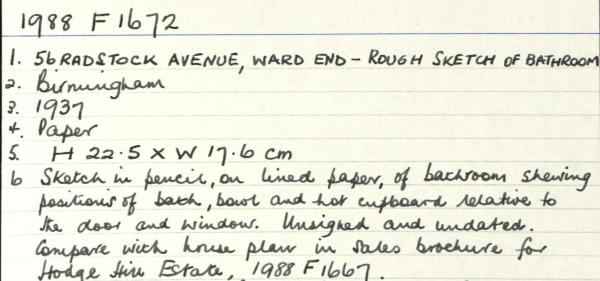 1988 F 1672
1. 56 RADSTOCK AVENUE, WARD END - ROUGH SKETCH OF BATHROOM
2. Birmingham
3. 1937
4. Paper
5. H 22.5 x W 17.6 cm
6 Sketch in pencil, on lined paper, of bathroom shewing
positions of bath, bowl and hot cupboard relative to
the door and window. Unsigned and undated.
Compare with house plan in sales brochure for
Hodge Hill Estate, 1988 F 1667.